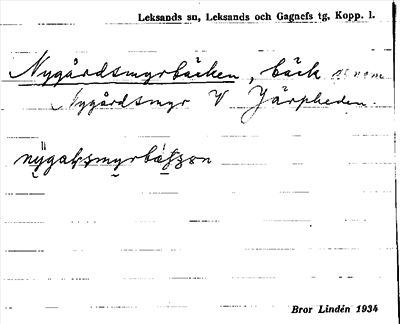 Leksands sn, Leksands och Gagnefs tg, Kopp. l.
Nygårdsmyrbäcken, bäck genom
Nygårdsmyr V Järpheden.
Bror Lindén 1934